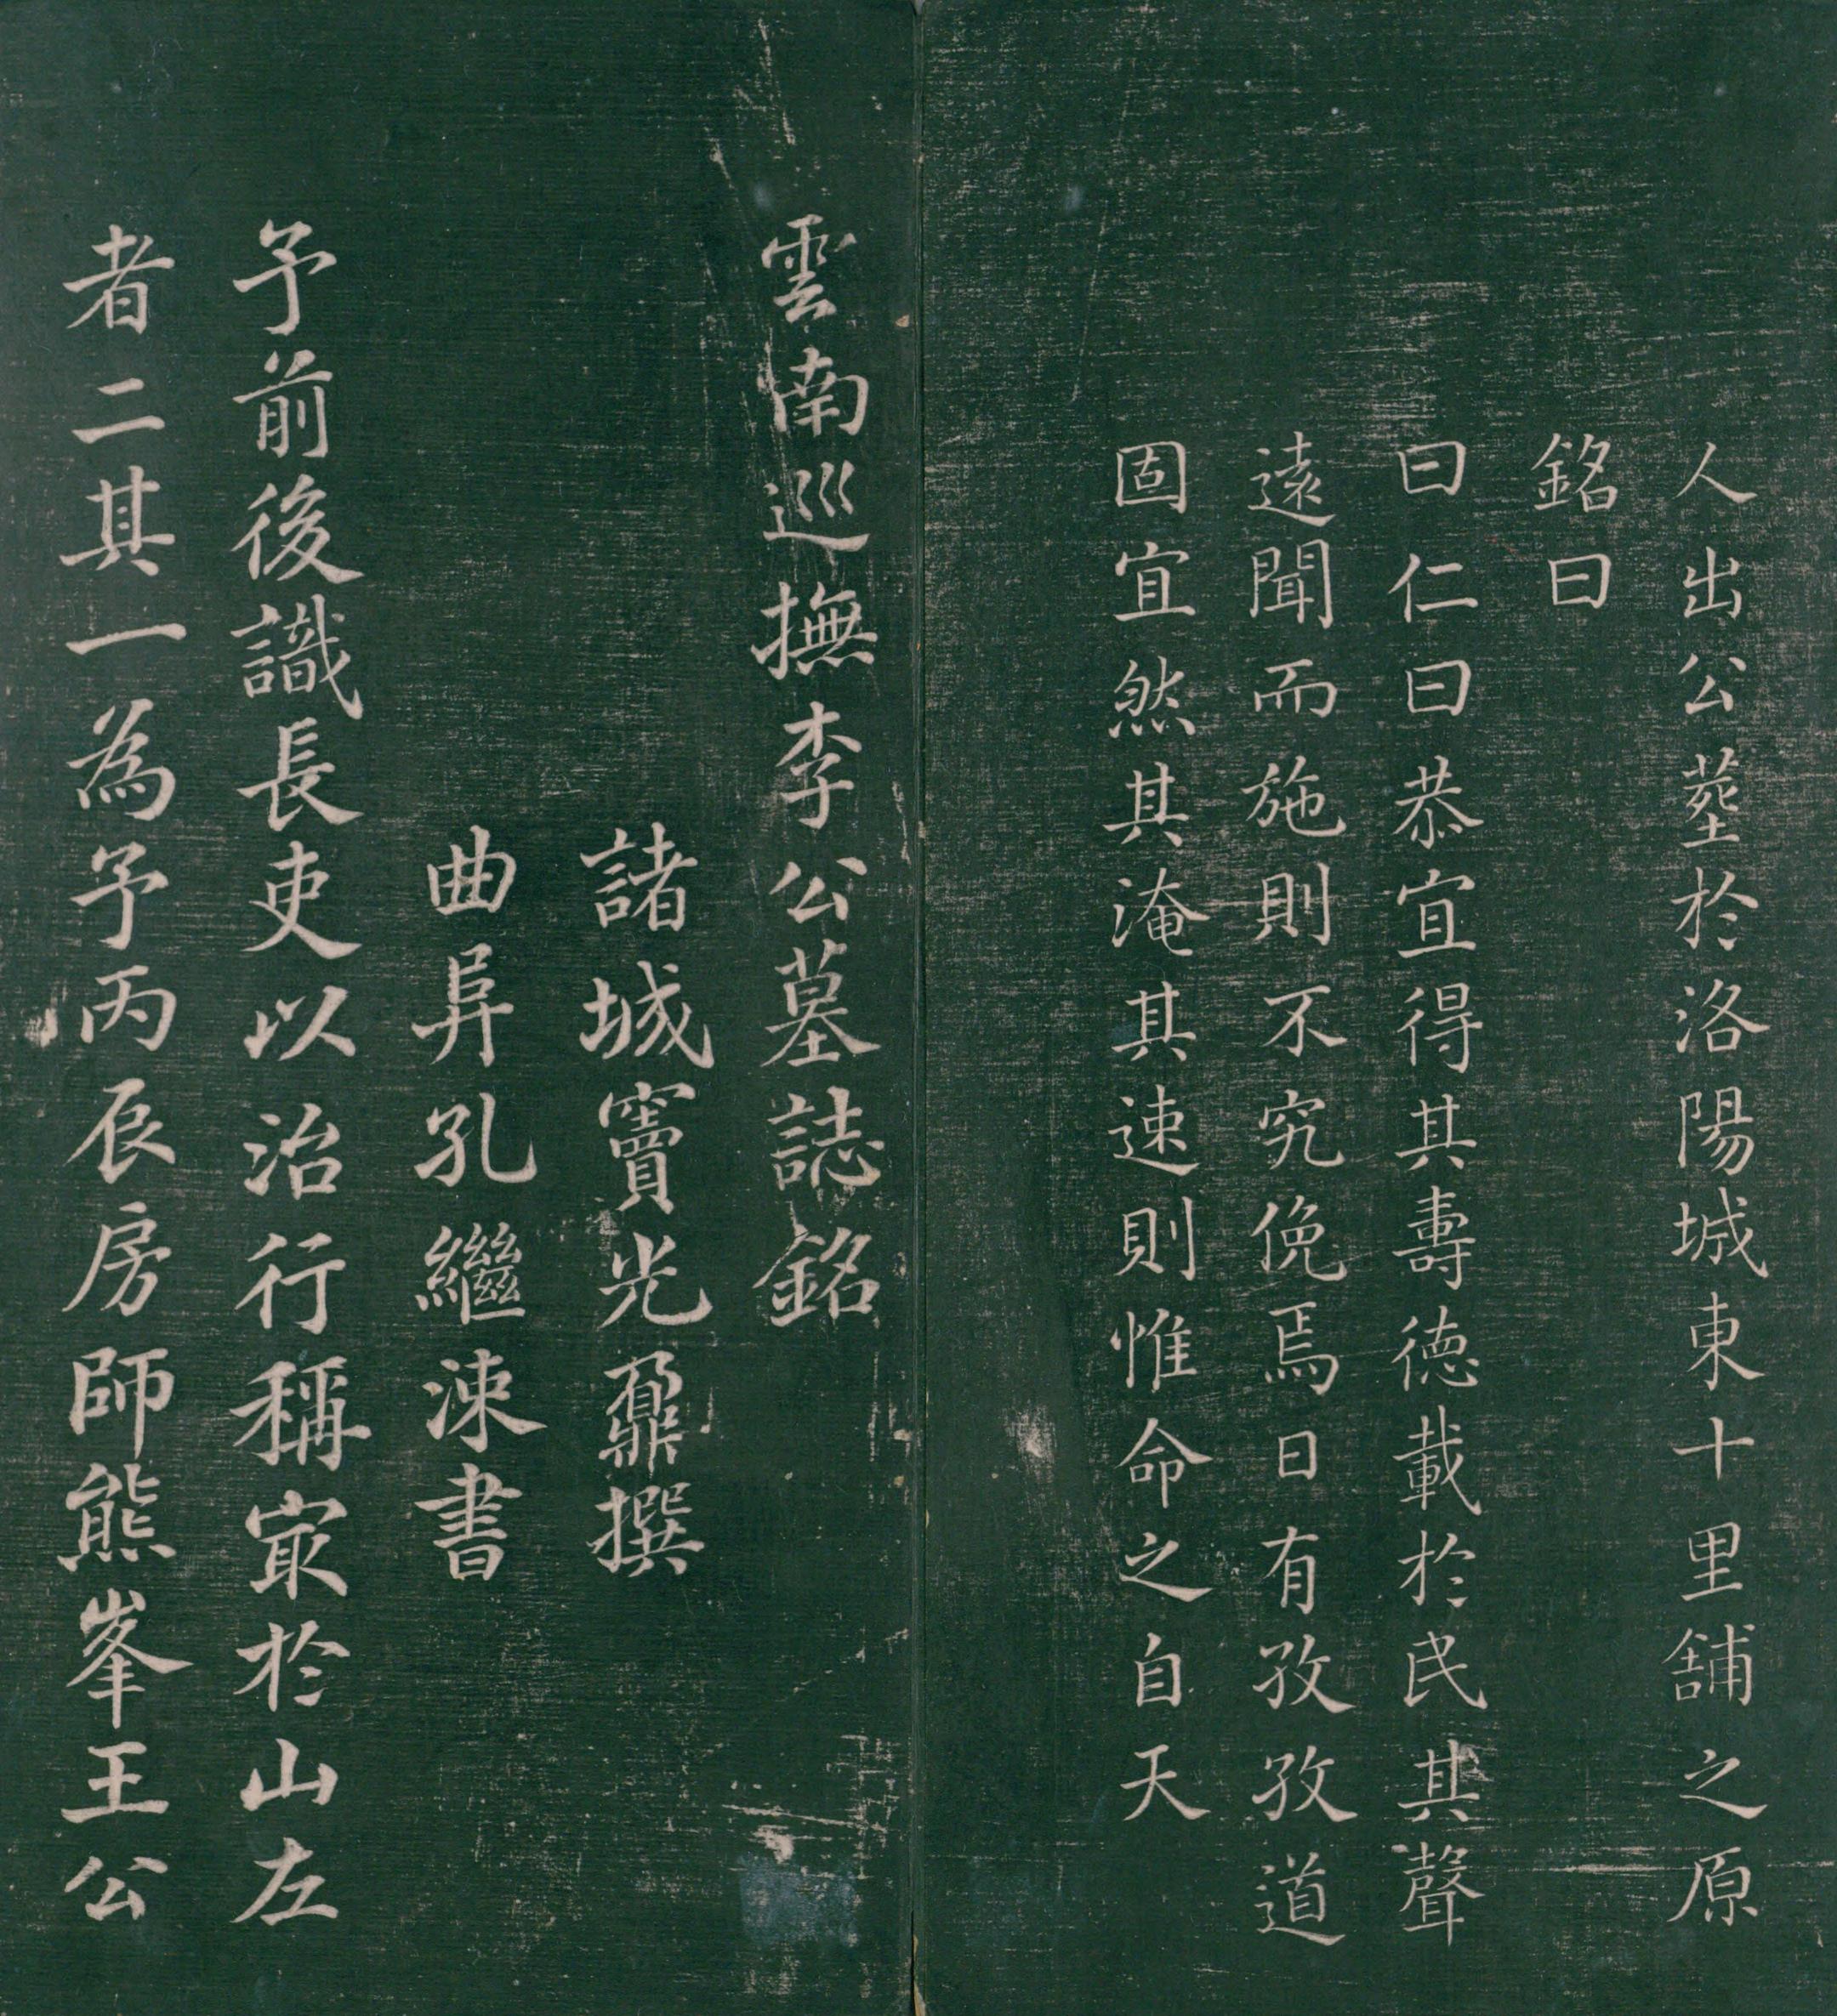 人出公葬於洛陽城東十里舖之原
銘曰
曰仁曰恭宜得其壽德載於民其聲
遠聞而施則不究俛焉日有孜孜道
固宜然其淹其速則惟命之自天
雲南巡撫李公墓誌銘
諸城竇光鼐撰
曲阜孔繼涑書
予前後識長吏以治行稱冣於山左
者二其一為予丙辰房師熊峯王公